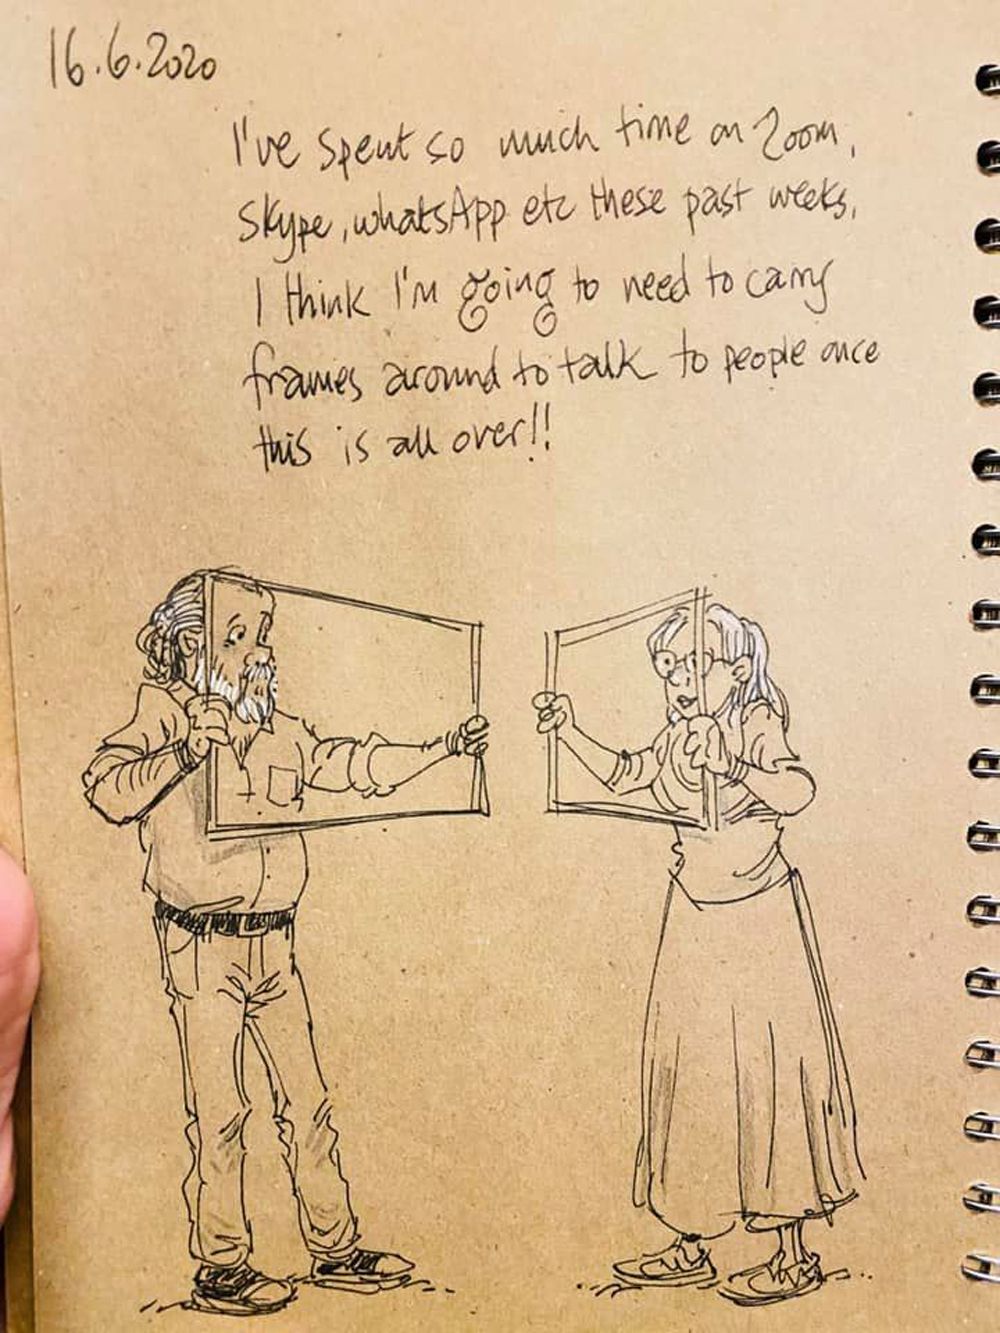 16.6.2020
I've spent so much time on Zoom,
Skype, whatsApp etc these past weeks,
I think I'm going to need to carry
frames around to talk to people once
this is all over!!